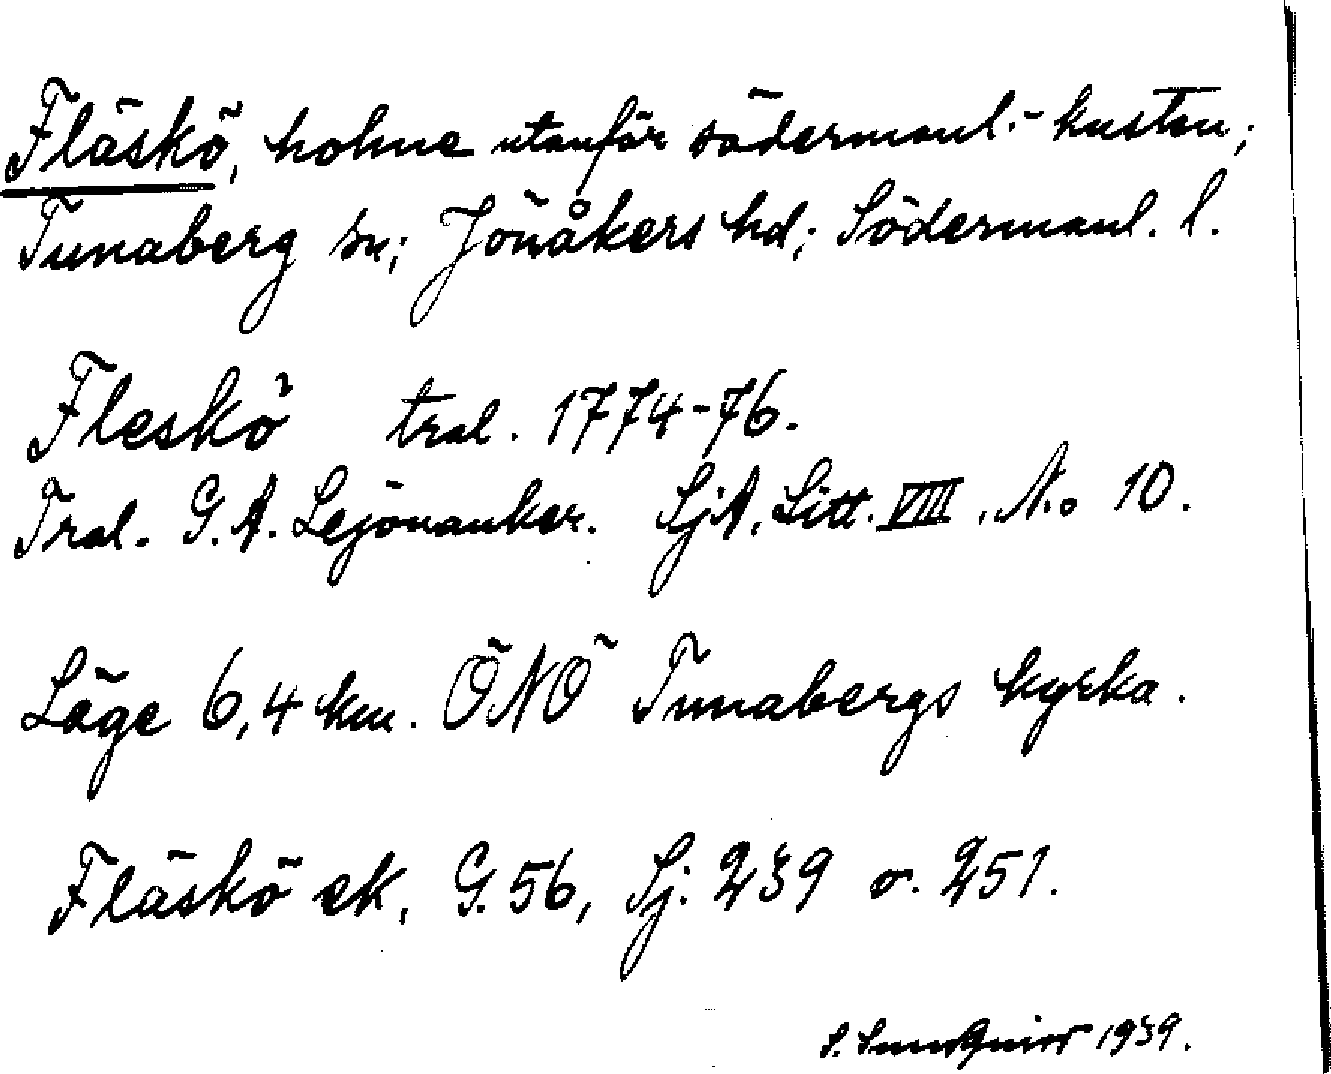 Fläskö, holme utanför södermanl.-kusten;
Tunaberg sn; Jönåkers hd; Södermanl. l.
Fleskö tral. 1774-76.
Tral. G. A. Lejonanker. SjA. Litt. VIII. No 10.
Läge 6,4 km. ÖNÖ Tunabergs kyrka.
Fläskö ek, G. 56, Sj. 239 o. 251.
S. 1939.